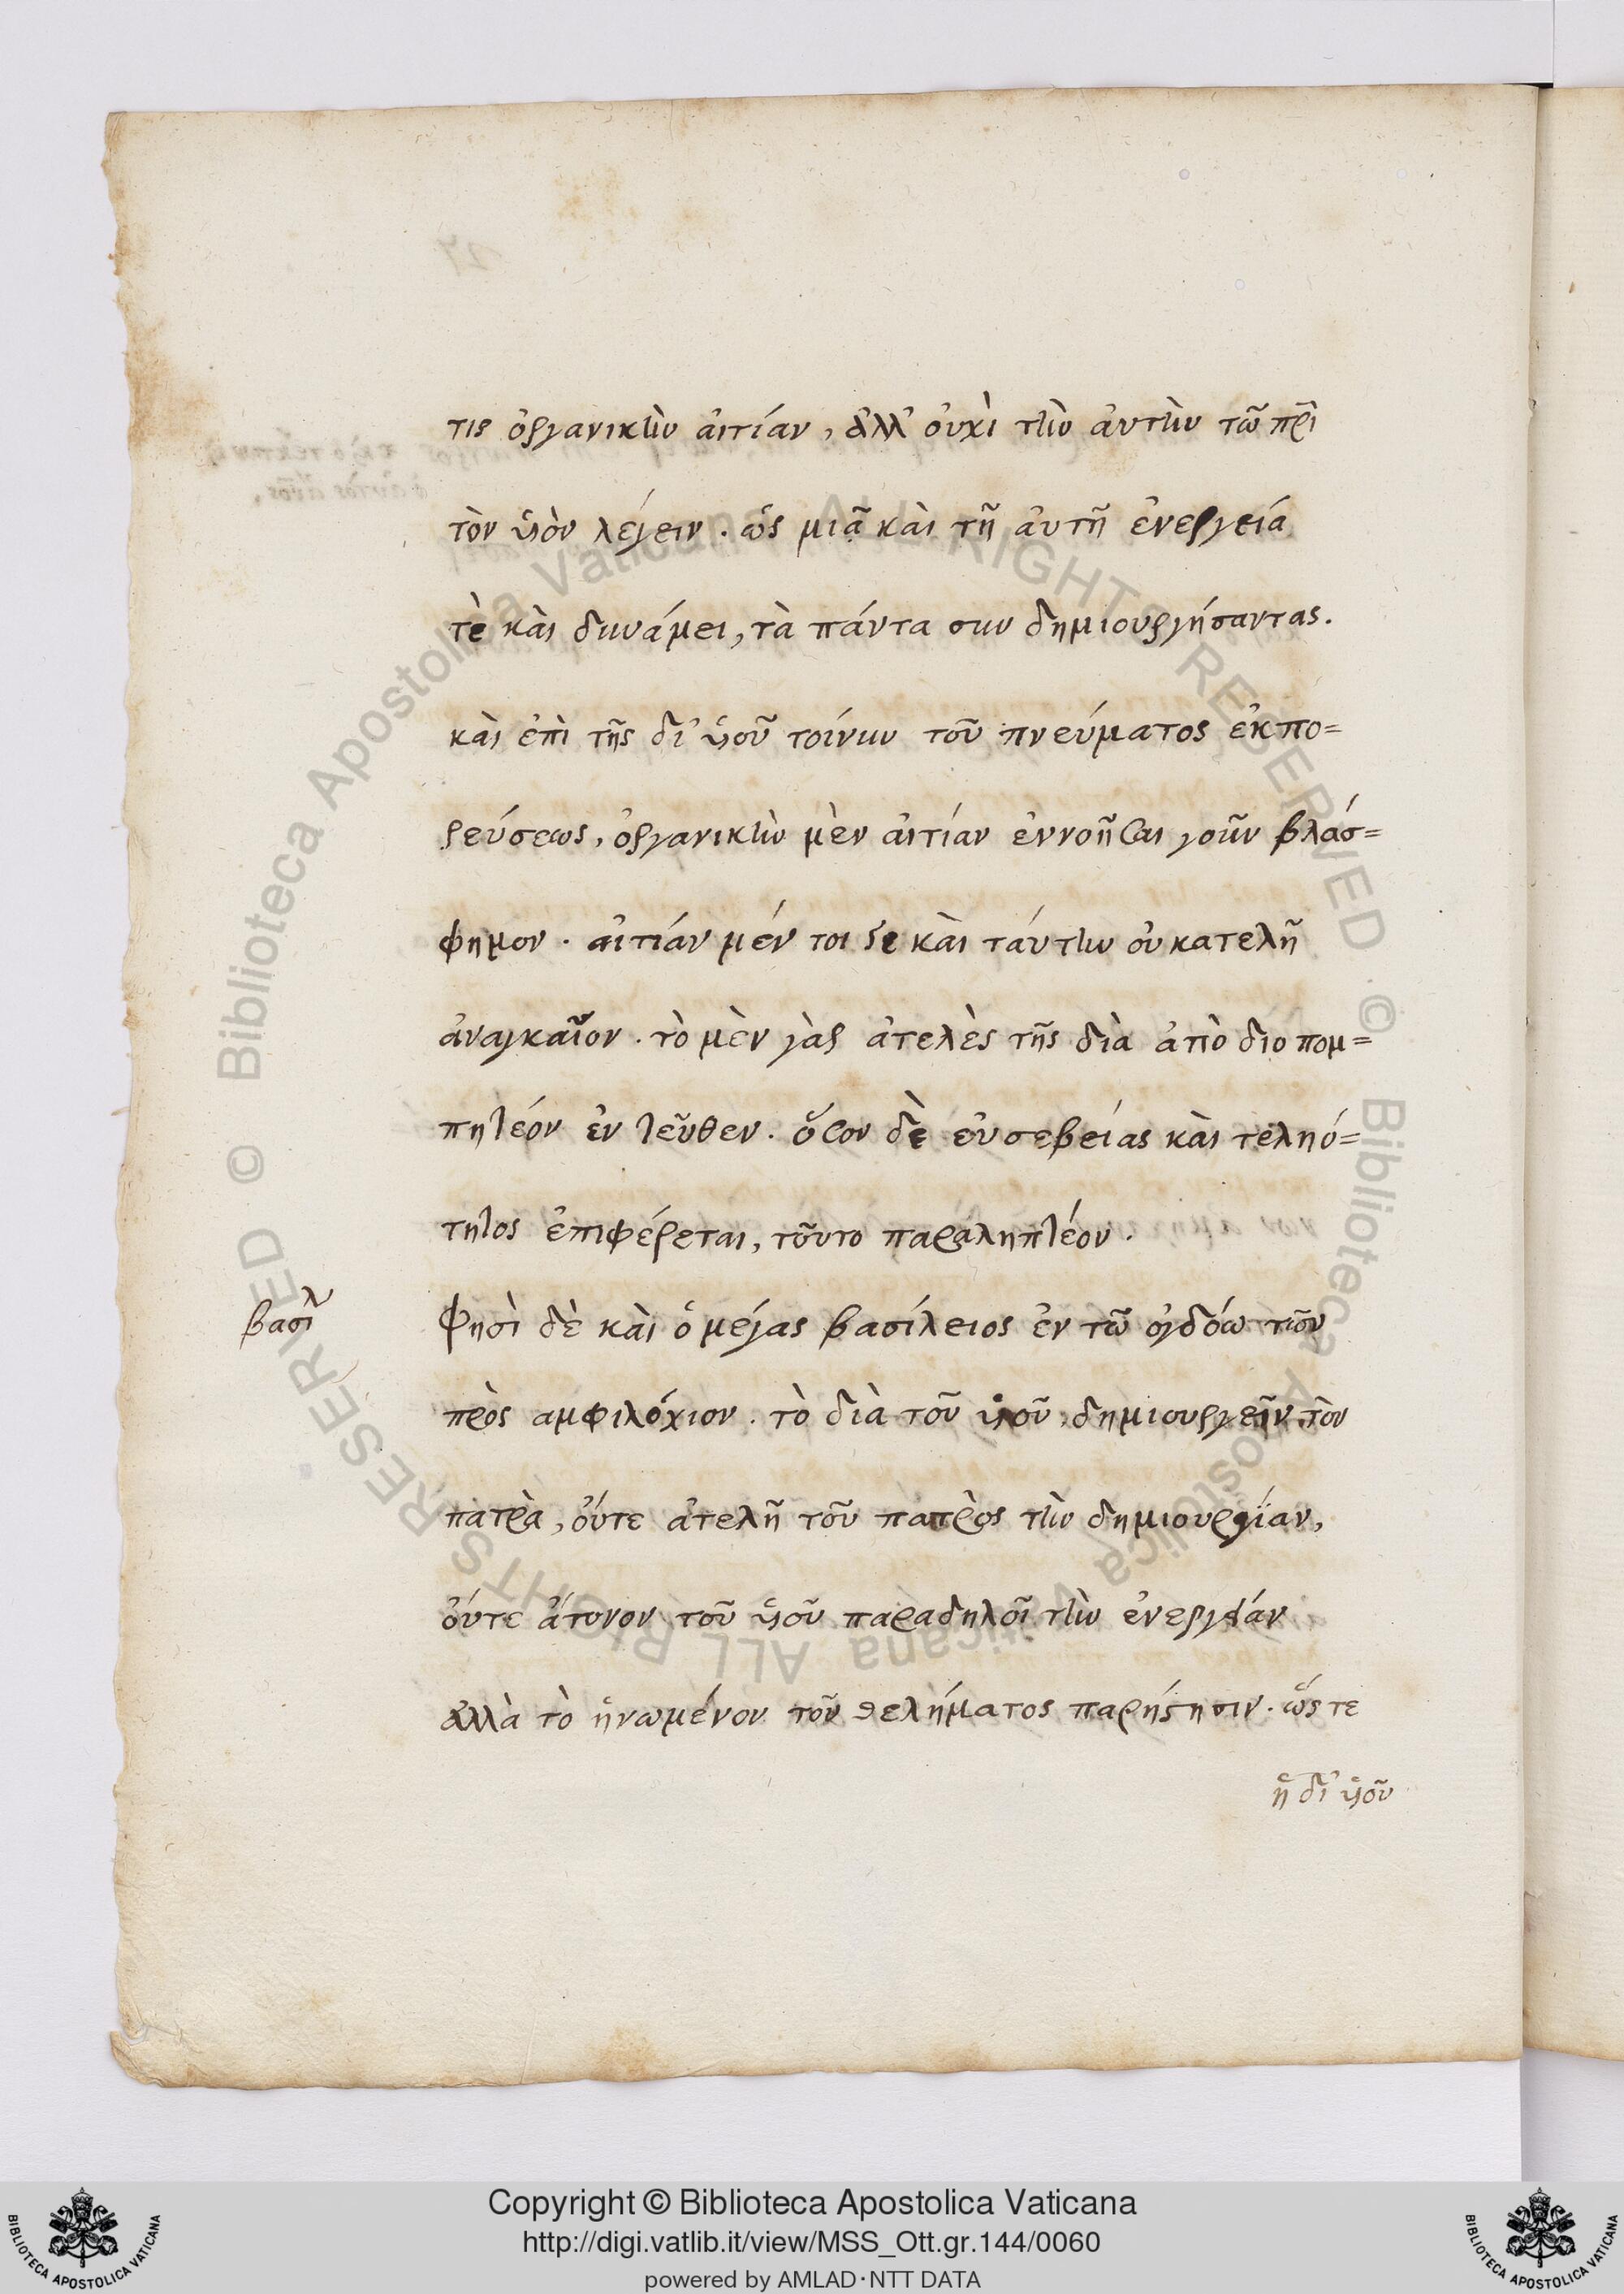 τις ὀργανικὴν ἀιτίαν, ἀλλ' ὀυχὶ τὴν ἀυτὴν τῶ πρ̅ι
τὸν ὑιὸν λέγειν. ὡς μιᾶ κὰι τῆ ἀυτῆ ἐνεργεία
τὲ κὰι δυνάμει, τὰ πάντα συν δημιουργήσαντας.
κὰι ἐπὶ τῆς δι' ὑιοῦ τοίνυν τοῦ πνεύματος ἐκπο=
ρεύσεως, ὀργανικὴν μὲν ἀιτίαν ἐννοῆσαι γοῦν βλάσ=
φημον. αἰτίαν μέν τοι δε κὰι ταύτην οὐκατελῆ
ἀναγκαῖον. τὸ μὲν γὰρ ἀτελὲς τῆς διὰ ἀπὸ διο πομ=
πητέον ἐν τεῦθεν. ὅσον δὲ ἐυσεβείας κὰι τεληό=
τητος ἐπιφέρεται, τοῦτο παραληπτέον.
βασιλ
Φησὶ δὲ κὰι ὁ μέγας βασίλειος ἐν τῶ ὀγδόω τῶν
πρὸς αμφιλόχιον. τὸ διὰ τοῦ ὑιοῦ, δημιουργεῖν τὸν
πατρὰ, ὀύτε ἀτελῆ τοῦ πατρὸς τὴν δημιουργίαν,
ὀύτε ἄτονον τοῦ ὑιοῦ παραδηλοῖ τὴν ἐνεργείαν
ἀλλὰ τὸ ἡνωμένον τοῦ θελήματος παρήστησιν. ὥστε
ἡ δι' ὑιοῦ
Copyright © Biblioteca Apostolica Vaticana
http://digi.vatlib.it/view/MSS_Ott.gr.144/0060
powered by AMLAD·NTT DATA
BIBLIOTECA APOSTOLICA VATICANA
BIBLIOTECA APOSTOLICA VATICANA
© Biblioteca Apostolica Vaticana ALL RIGHTS RESERVED · © Biblioteca Apostolica Vaticana ALL RIGHTS RESERVED